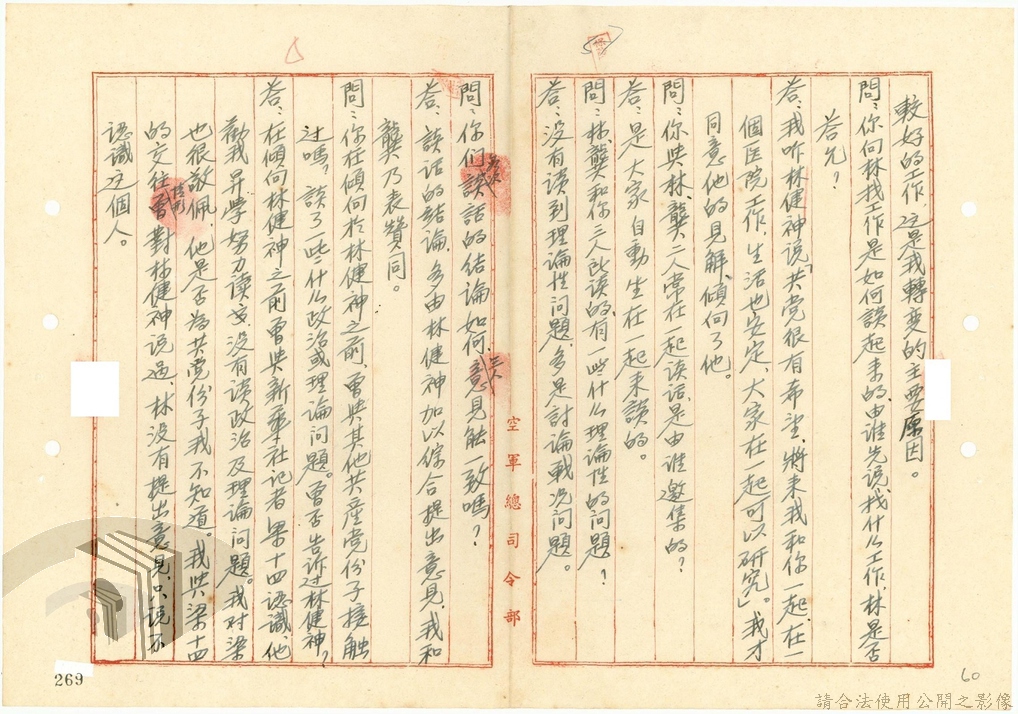 較好的工作，这是我轉变的主要原因。
問：你向林找工作是如何談起来的，由谁先说，找什么工作，林是否
答允？
答：我咋林健神说「共党很有希望，將来我和你一起，在一
個医院工作，生活也安定，大家在一起可以研究」。我才
同意他的見解，傾向了他。
問：你與林、龔二人常在一起谈话，是由谁邀集的？
答：是大家自動坐在一起来談的。
問：林、龔和你三人所谈的，有一些什么理論性的问题？
答：没有谈到理論性问题，多是討論戰况问题。
空軍總司令部
問：你们談話的结論如何，三人意見能一致嗎？
答：談话的结論，多由林健神加以綜合提出意見，我和
龔乃表贊同。
問：你在傾向於林健神之前，曾與其他共產党份子接触
过嗎？談了一些什么政治或理論问题。曾否告诉过林健神？
答：在傾向林健神之前曾與新華社记者梁十四認識，他
勸我昇學努力读书，没有谈政治及理論问題。我对梁
也很敬佩，他是否為共党份子我不知道。我與梁十四
的交往情形曾對林健神说過，林没有提出意見，只说不
認識这個人。
269
60
請合法使用公開之影像